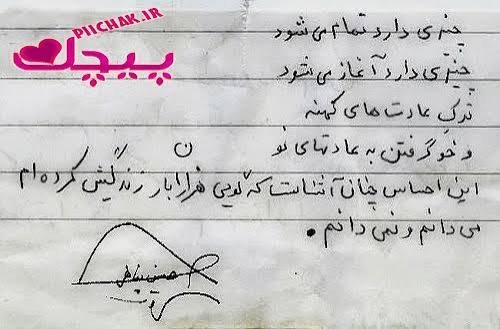 PIICHAK.IR
پیچک
چیزی دارد تمام می شود
چیزی دارد آغاز می شود
ترکِ عادت های کهنه
و خو گرفتن به عادتهای نو
این احساس چنان آشناست که گویی هزاران بار زندگیش کرده ام
می دانم و نمی دانم.
حسین پناهی